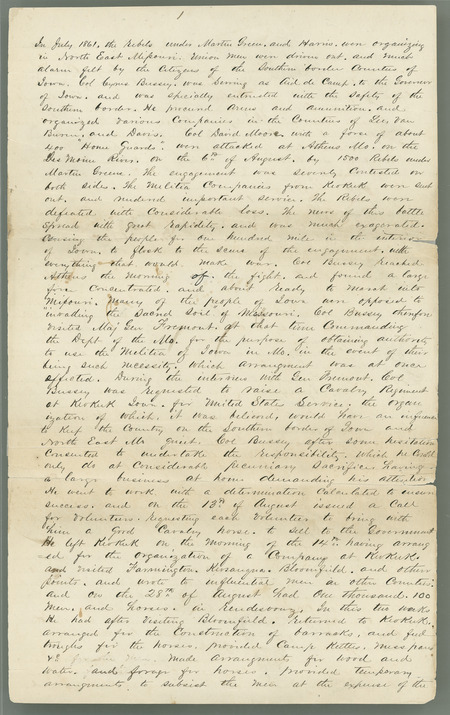 1
In July 1861, the Rebels under Martin Green, and Harris, were organizing
in North East Missouri. Union men were driven out, and much
alarm felt by the Citizens of the Southern border Counties of
Iowa. Col Cyrus Bussey, was serving as Aid de Camp, to the Governor
of Iowa, and was specially entrusted with the safety of the
Southern border. He procured Arms and ammunition, and
organized various Companies in the Counties of Lee, Van
Buren, and Davis. Col David Moore, with a force of about
400 "Home Guards", were attacked at Athens Mo. on the
Des Moine River, on the 6th of August, by 1500 Rebels under
Martin Greene. The engagement was severely contested on
both sides. The Militia Companies from Keokuk were sent
out, and rendered important service. The Rebels were
defeated with Considerable loss. The news of this battle
Spread with great rapidity, and was much exagerated.
Causing the people for one hundred mile in the interior
of Iowa, to flock to the scene of the engagement, with
everything that would make war. Col Bussey reached
Athens the morning of the fight, and found a large
force Concentrated, and about ready to march into
Missouri. Many of the people of Iowa were opposed to
invading the "Sacred Soil" of Missouri. Col Bussey therefore
visited Maj Gen Fremont, at that time Commanding
the Dept of the Mo. for the purpose of obtaining authority
to use the Militia of Iowa in Mo. in the event of their
being such necessity, which arrangement was at once
effected. During the interview with Gen Fremont, Col
Bussey was requested to raise a Cavalry Regiment
at Keokuk Iowa, for United States Service, the organ
ization of which, it was believed, would have an influence
to Keep the Country on the Southern border of Iowa and
North East Mo quiet. Col Bussey after some hesitation
Consented to undertake the responsibility, which he could
only do at Considerable pecuniary Sacrifice having
a large business at home demanding his attention
He went to work with a determination Calculated to ensure
success, and on the 13th of August issued a Call
for Volunteers, requesting each Volunteer to bring with
him a good Cavalry horse, to sell to the Government
He left Keokuk on the Morning of the 14th having arrang
ed for the organization of a Company at Keokuk.
and visited Farmington, Keosauqua, Bloomfield, and other
points, and wrote to influential men in other Counties
and on the 28th of August had One thousand, 100
Men, and horses, in rendezvous. In this two weeks
He had after visiting Bloomfield, returned to Keokuk,
arranged for the Construction of barracks, and feed
troughs for the horses, provided Camp Kettles, Mess pans
&c Made Arrangments for wood and
water, and forage for horses. Provided temporary
arrangments to subsist the Men at the expense of the